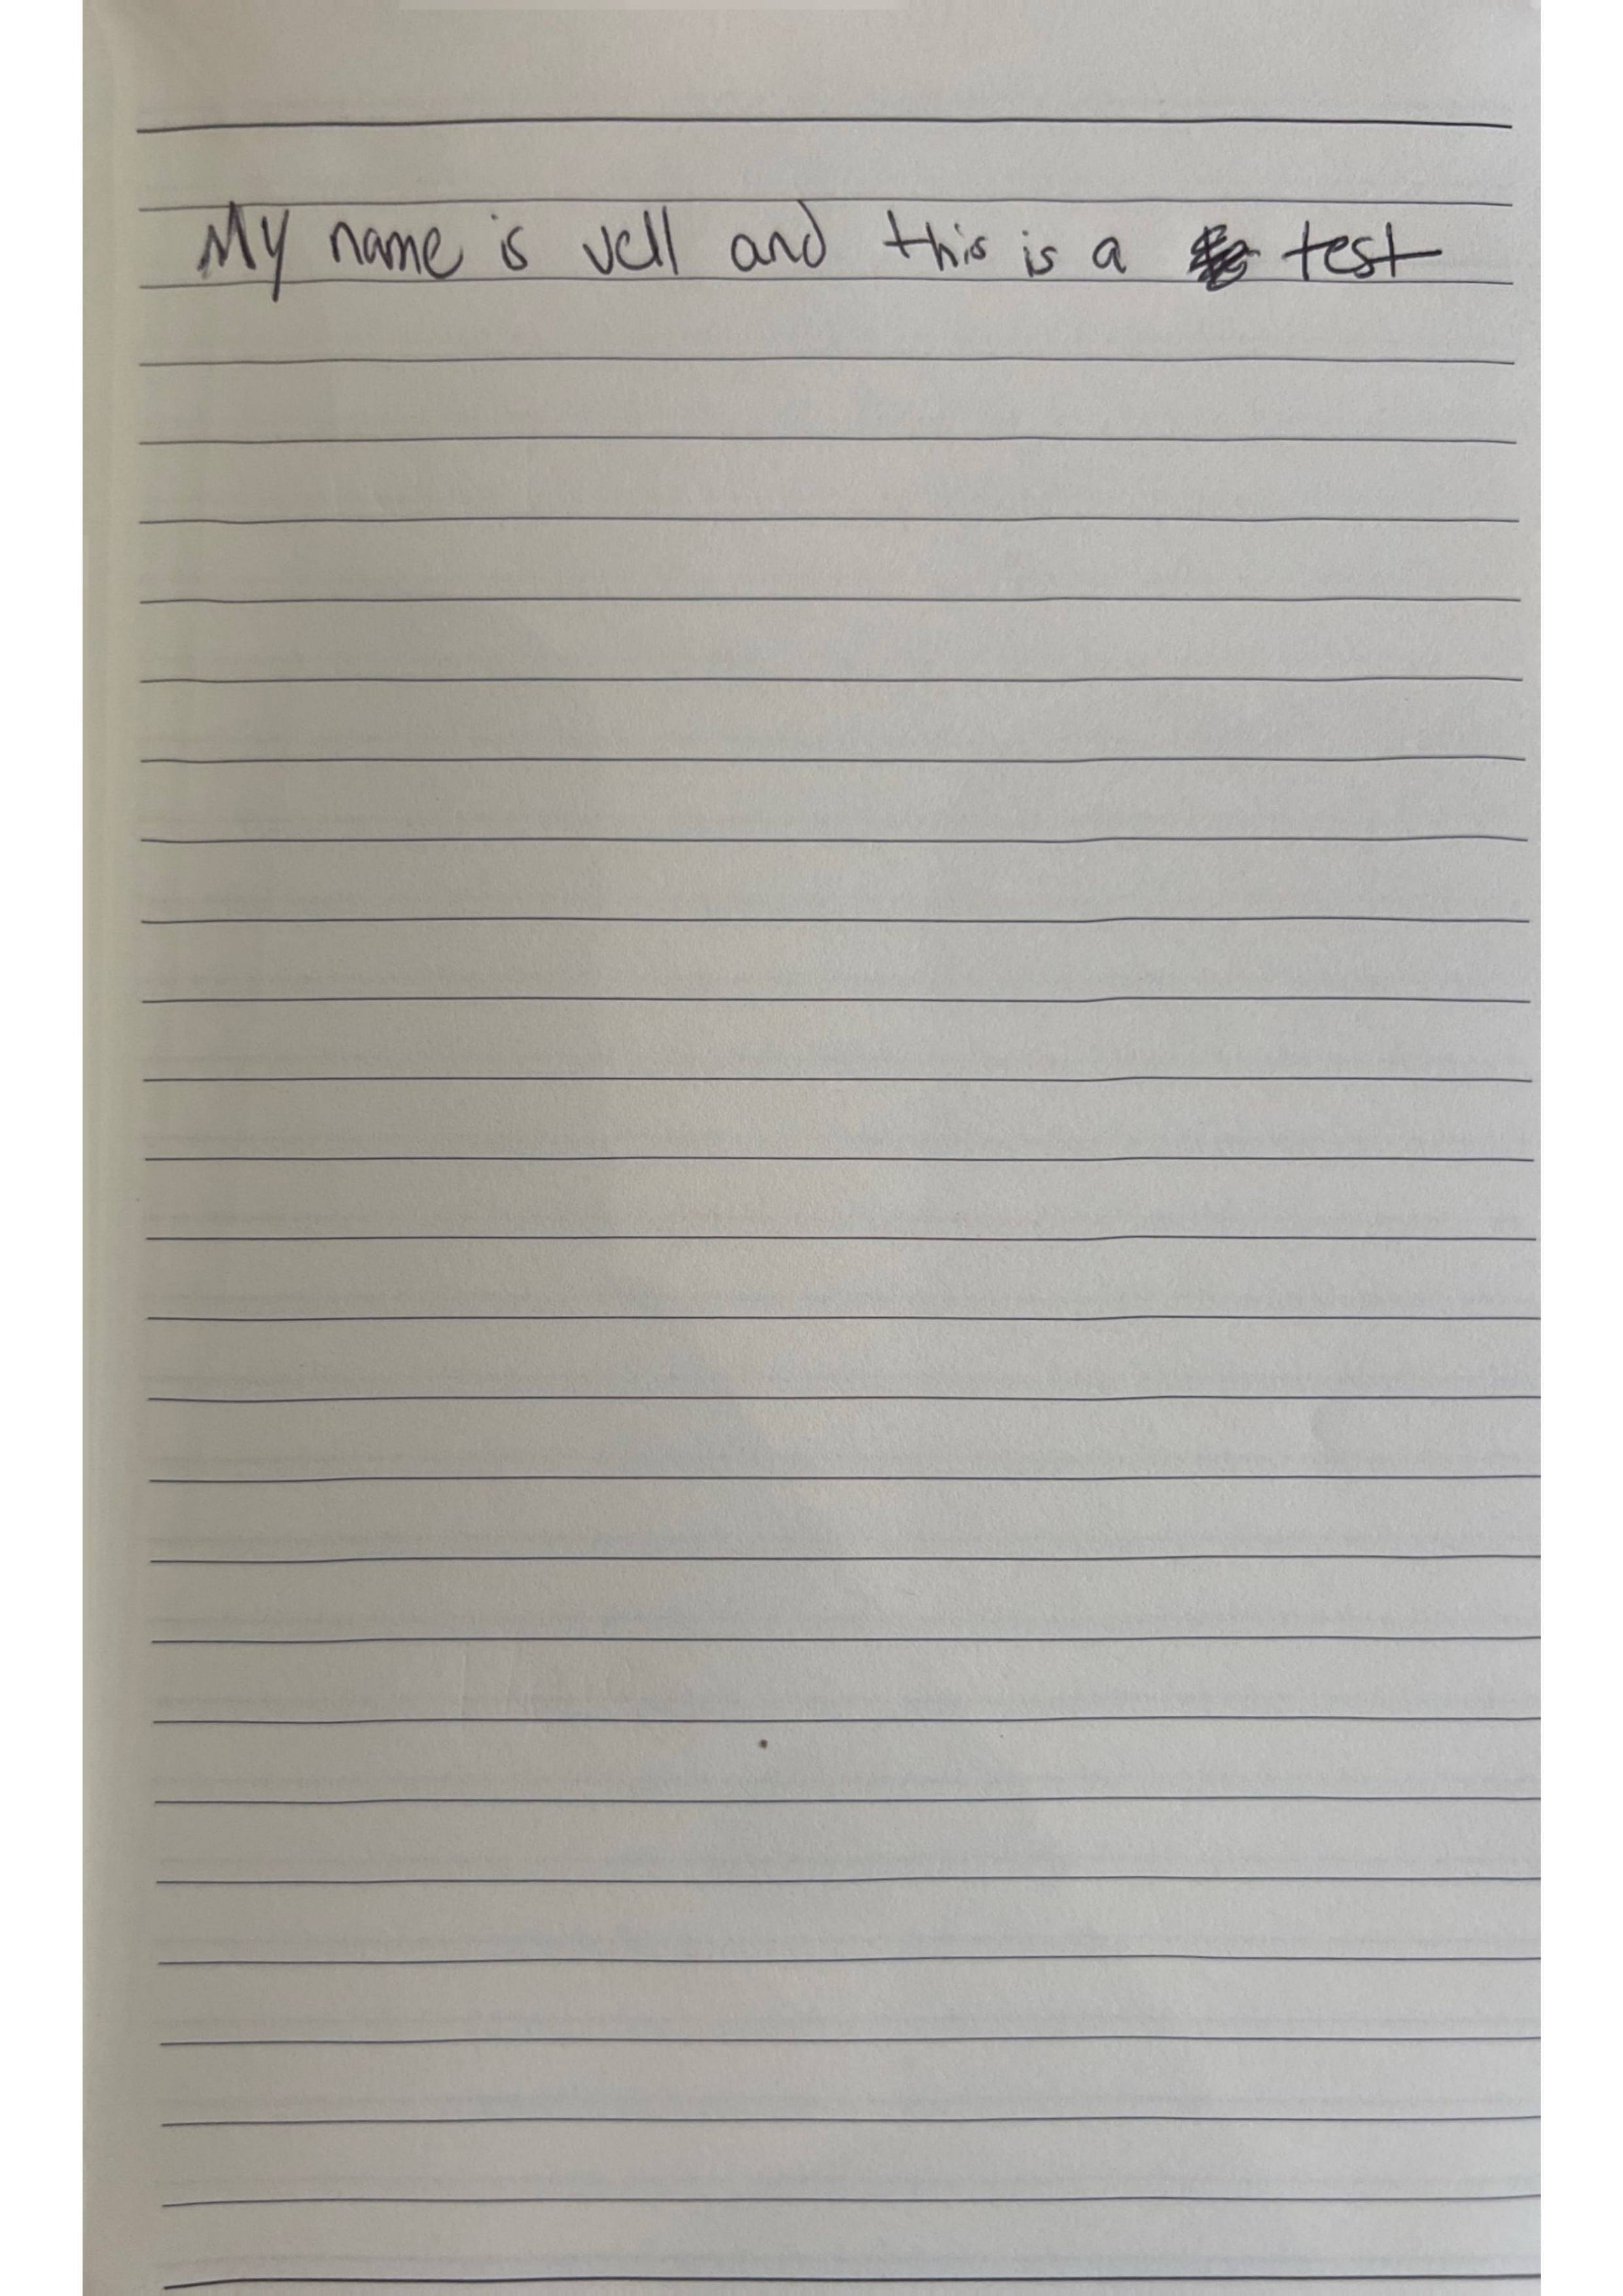 My name is vell and this is a test